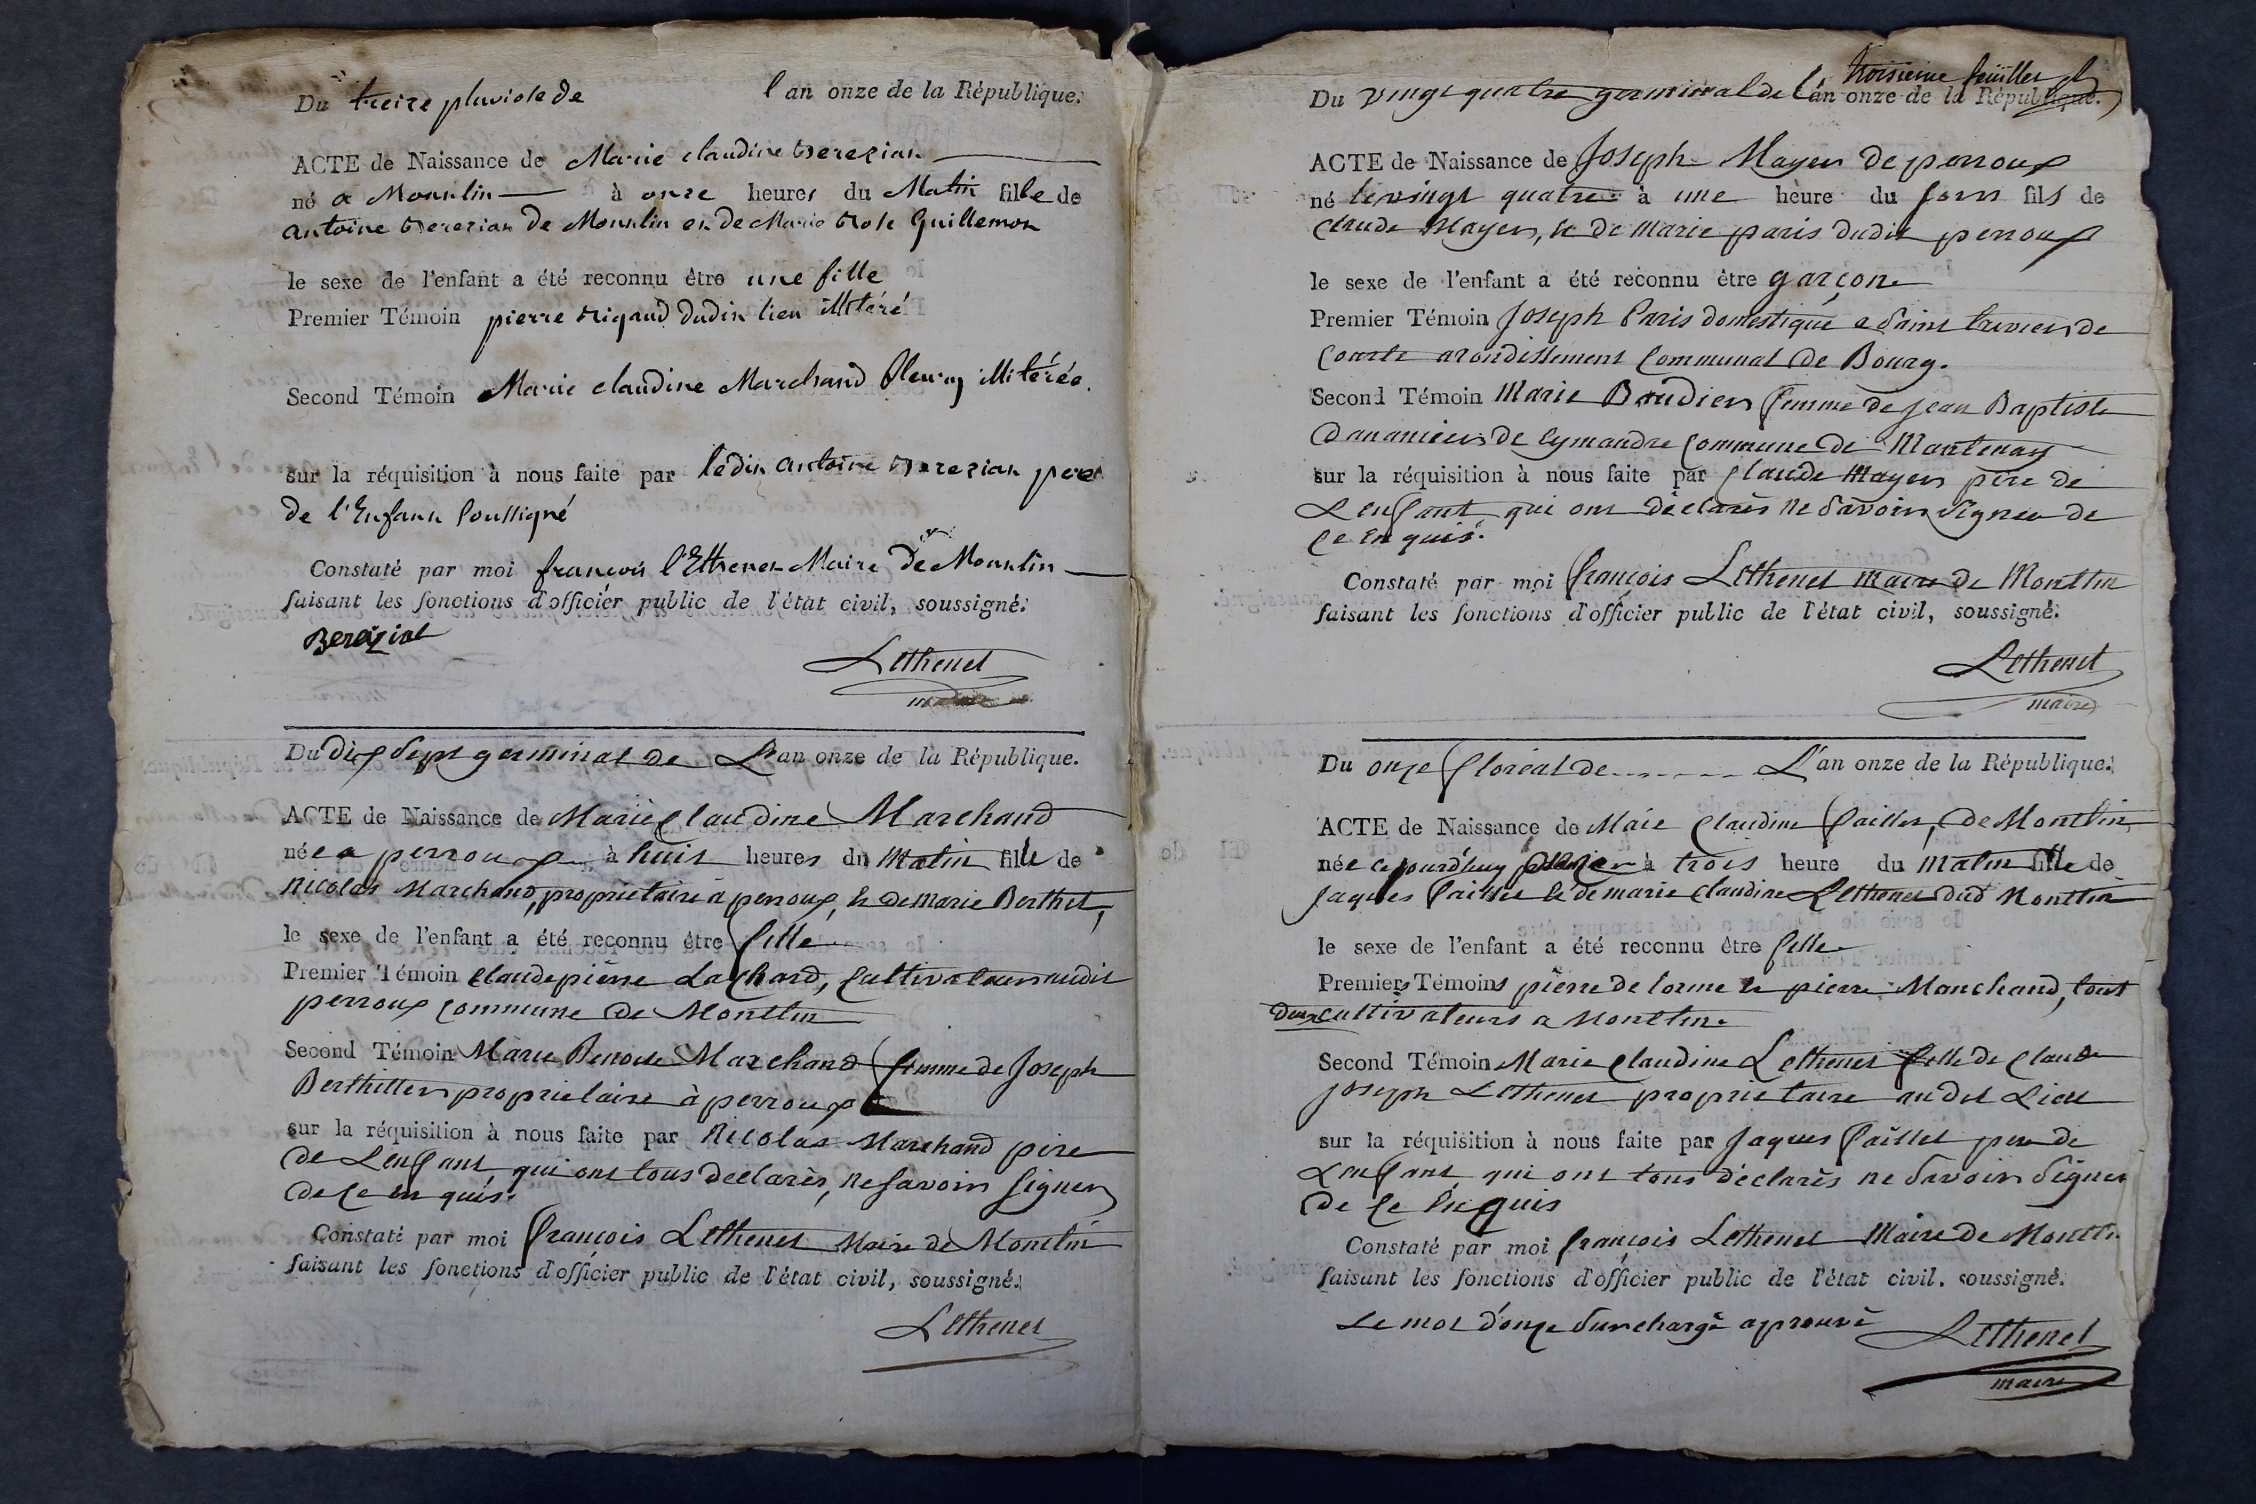 Du treize pluviose de l'an onze de la République.
ACTE de Naissance de Marie claudine Berezian
né a Monnlin à onze heures du Matin fille de
antoine Berezian de Monnlin et de Marie Rose Guillemon
le sexe de l'enfant a été reconnu être une fille
Premier Témoin pierre rigaud dudit lieu illitéré
Second Témoin Marie claudine Marchand illitérée.
sur la réquisition à nous faite par ledit antoine Berezian pere
de l'Enfant soussigné
Constaté par moi francois l'Ethenet Maire de Monnlin
faisant les fonctions d'officier public de l'état civil, soussigné.
Bereziat
Lethenet
maire
Du dix sept germinal de L'an onze de la République.
ACTE de Naissance de Marie Claudine Marchand
née a perroux à huit heures du Matin fille de
Nicolas Marchand, proprietaire a perroux, & de Marie Berthet,
le sexe de l'enfant a été reconnu être fille
Premier Témoin Claude pierre Lachard, Cultivateur audit
perroux commune de Montlin
Second Témoin Marie Benoite Marchand femme de Joseph
Berthillier proprietaire à perroux
sur la réquisition à nous faite par Nicolas Marchand père
de L'enfant, qui ont tous declarés, ne savoir signer
de ce en quis.
Constaté par moi François Lethenet Maire de Montlin
faisant les fonctions d'officier public de l'état civil, soussigné.
Lethenet
troisieme feüillet
Du vingt quatre germinal de l'an onze de la République.
ACTE de Naissance de Joseph Mayer de perroux
né le vingt quatre à une heure du soir fils de
Claude Mayer, & de Marie paris dudit perroux
le sexe de l'enfant a été reconnu être garçon
Premier Témoin Joseph Paris domestique a Saint trivier de
Courte arondissement Communal de Bourg.
Second Témoin Marie Boudier femme de Jean Baptiste
Danancier de Lymandre Commune de Mantenay
sur la réquisition à nous faite par Claude Mayer père de
L'enfant qui ont déclarés ne Savoir Signer de
Ce En quis.
Constaté par moi François Lethenet Maire de Montlin
faisant les fonctions d'officier public de l'état civil, soussigné.
Lethenet
maire
Du onze floréal de L'an onze de la République.
ACTE de Naissance de Maie Claudine Paillet, de Montlin
née cejourd'huy à trois heure du matin fille de
Jaques Paillet & de marie Claudine Lethenet dud Montlin
le sexe de l'enfant a été reconnu être fille
Premiers Témoins pierre de lorme & pierre Manchand, tout
deux cultivateurs a Montlin.
Second Témoin Marie Claudine Lethenet fille de Claude
Joseph Lethenet proprietaire au dit Lieu
sur la réquisition à nous faite par Jaques Paillet pere de
L'enfant qui ont tous déclarés ne Savoir Signer
de Ce En quis
Constaté par moi françois Lethenet Maire de Montlin
faisant les fonctions d'officier public de l'état civil. soussigné.
Le mot d'onze Surchargé aprouvé Lethenet
maire